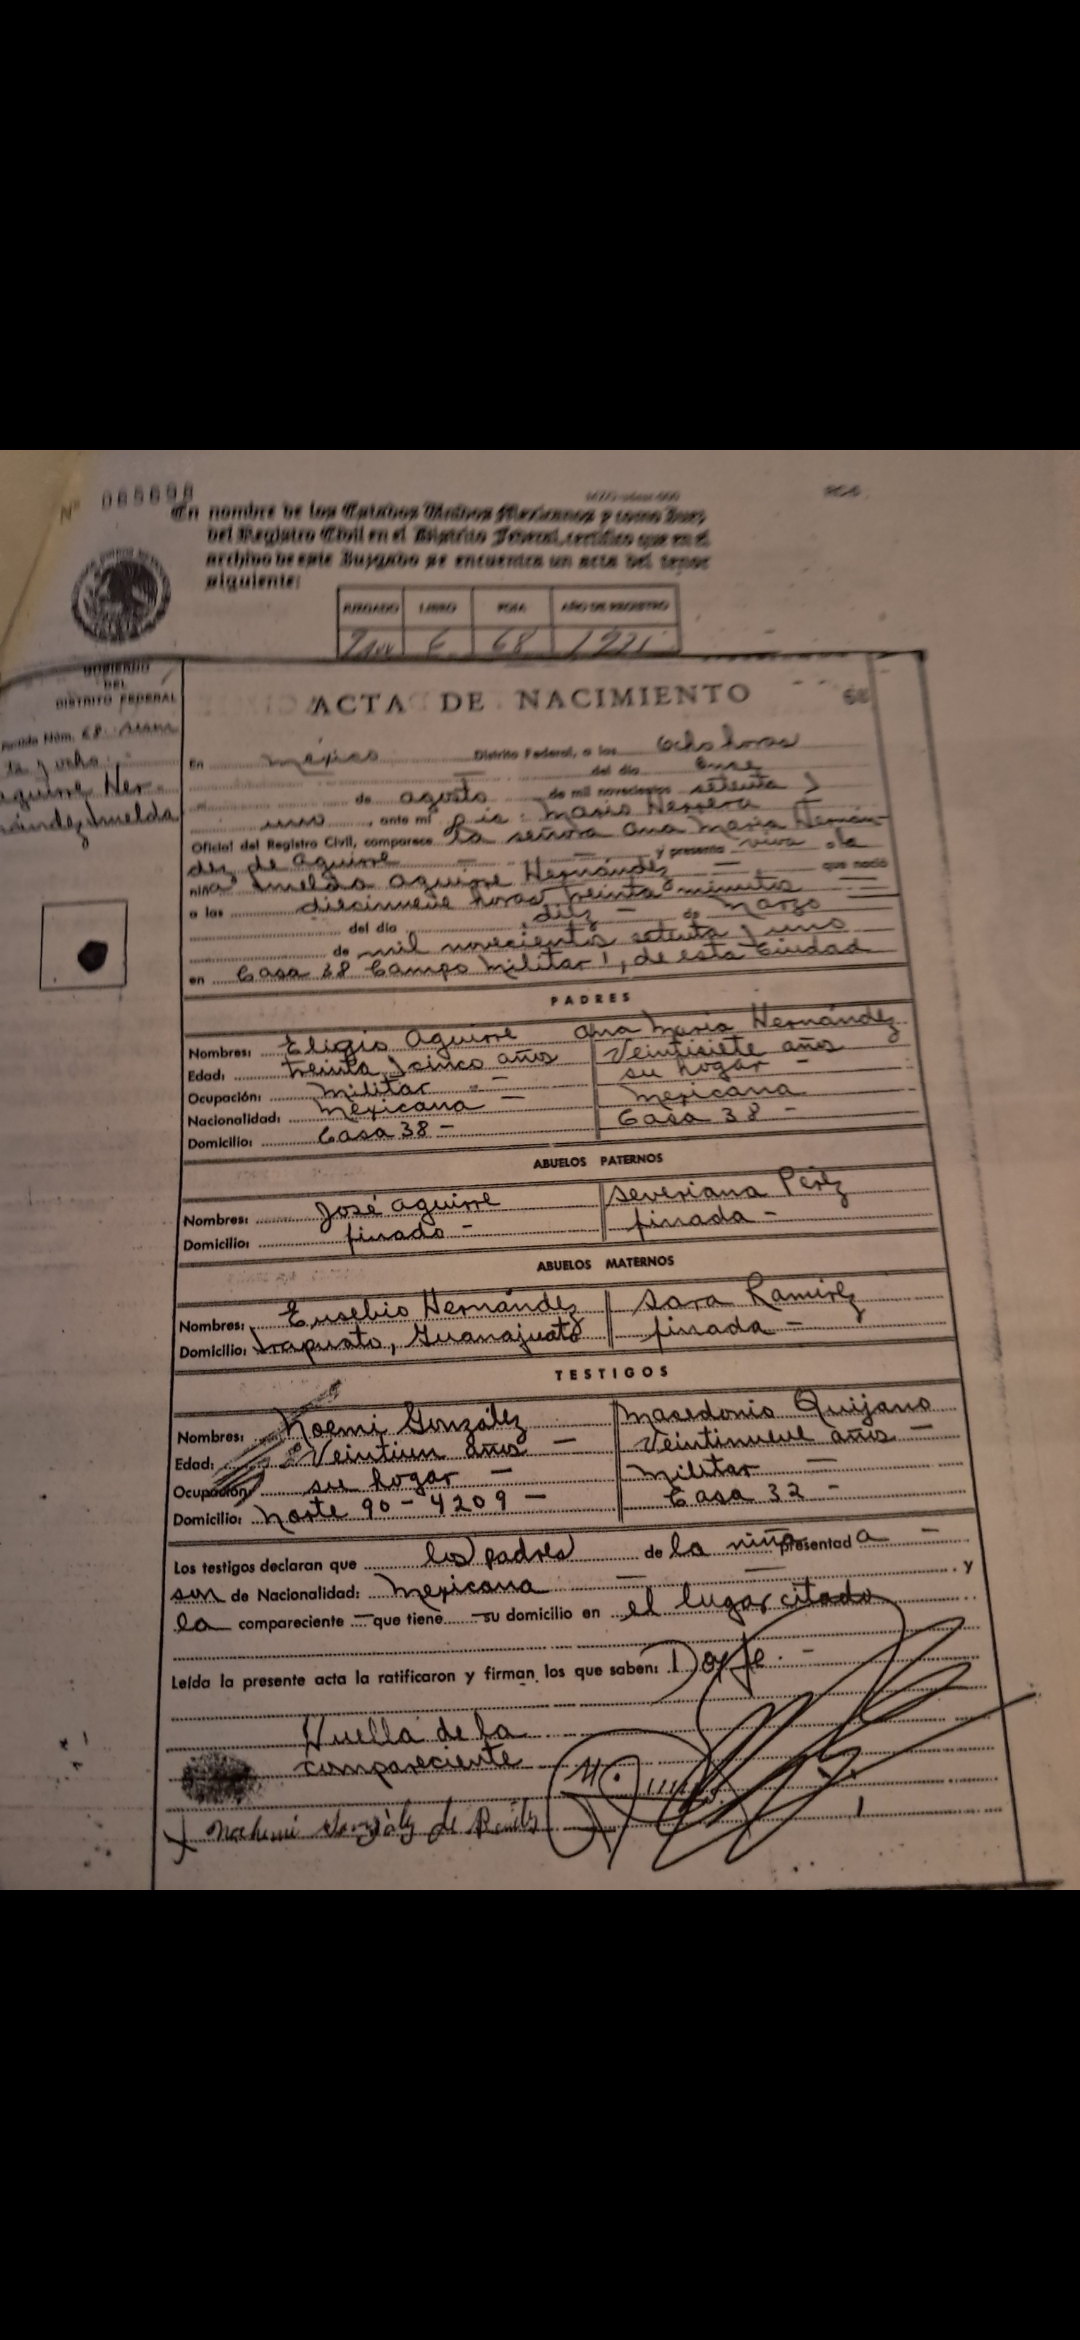 Nº 065698
En nombre de los Estados Unidos Mexicanos y como Juez
del Registro Civil en el Distrito Federal, certifico que en el
archivo de este Juzgado se encuentra un acta del tenor
siguiente:
JUZGADO LIBRO FOJA AÑO DE REGISTRO
6 68 1971
GOBIERNO
DEL
DISTRITO FEDERAL
Partida Núm. 68
ta y ocho
Aguirre Her-
nández Imelda
ACTA DE NACIMIENTO
68
En México Distrito Federal, a las Ocho horas
del día Once
de agosto de mil novecientos setenta y
uno, ante mí Mario Herrera
Oficial del Registro Civil, comparece La señora Ana Maria Hernán-
dez de Aguirre y presenta viva a la
niña Imelda Aguirre Hernández que nació
a las diecinueve horas treinta minutos
del día diez - de Marzo
de mil novecientos setenta y uno
en Casa 38 Campo Militar 1, de esta Ciudad
PADRES
Nombres: Eligio Aguirre Ana Maria Hernández
Edad: treinta y cinco años Veintisiete años
Ocupación: Militar - su hogar -
Nacionalidad: Mexicana - Mexicana
Domicilio: Casa 38 - Casa 38 -
ABUELOS PATERNOS
Nombres: José Aguirre Severiana Pérez
Domicilio: finado - finada -
ABUELOS MATERNOS
Nombres: Eusebio Hernández Sara Ramírez
Domicilio: Irapuato, Guanajuato finada -
TESTIGOS
Nombres: Noemi González Masedonio Quijano
Edad: Veintiun años - Veintinueve años -
Ocupación: su hogar - Militar -
Domicilio: Norte 90 - 4209 - Casa 32 -
Los testigos declaran que los padres de la niña presentad a -
son de Nacionalidad: Mexicana - y
la compareciente - que tiene - su domicilio en el lugar citado
Leída la presente acta la ratificaron y firman los que saben: Doy fe. -
Huella de la
compareciente